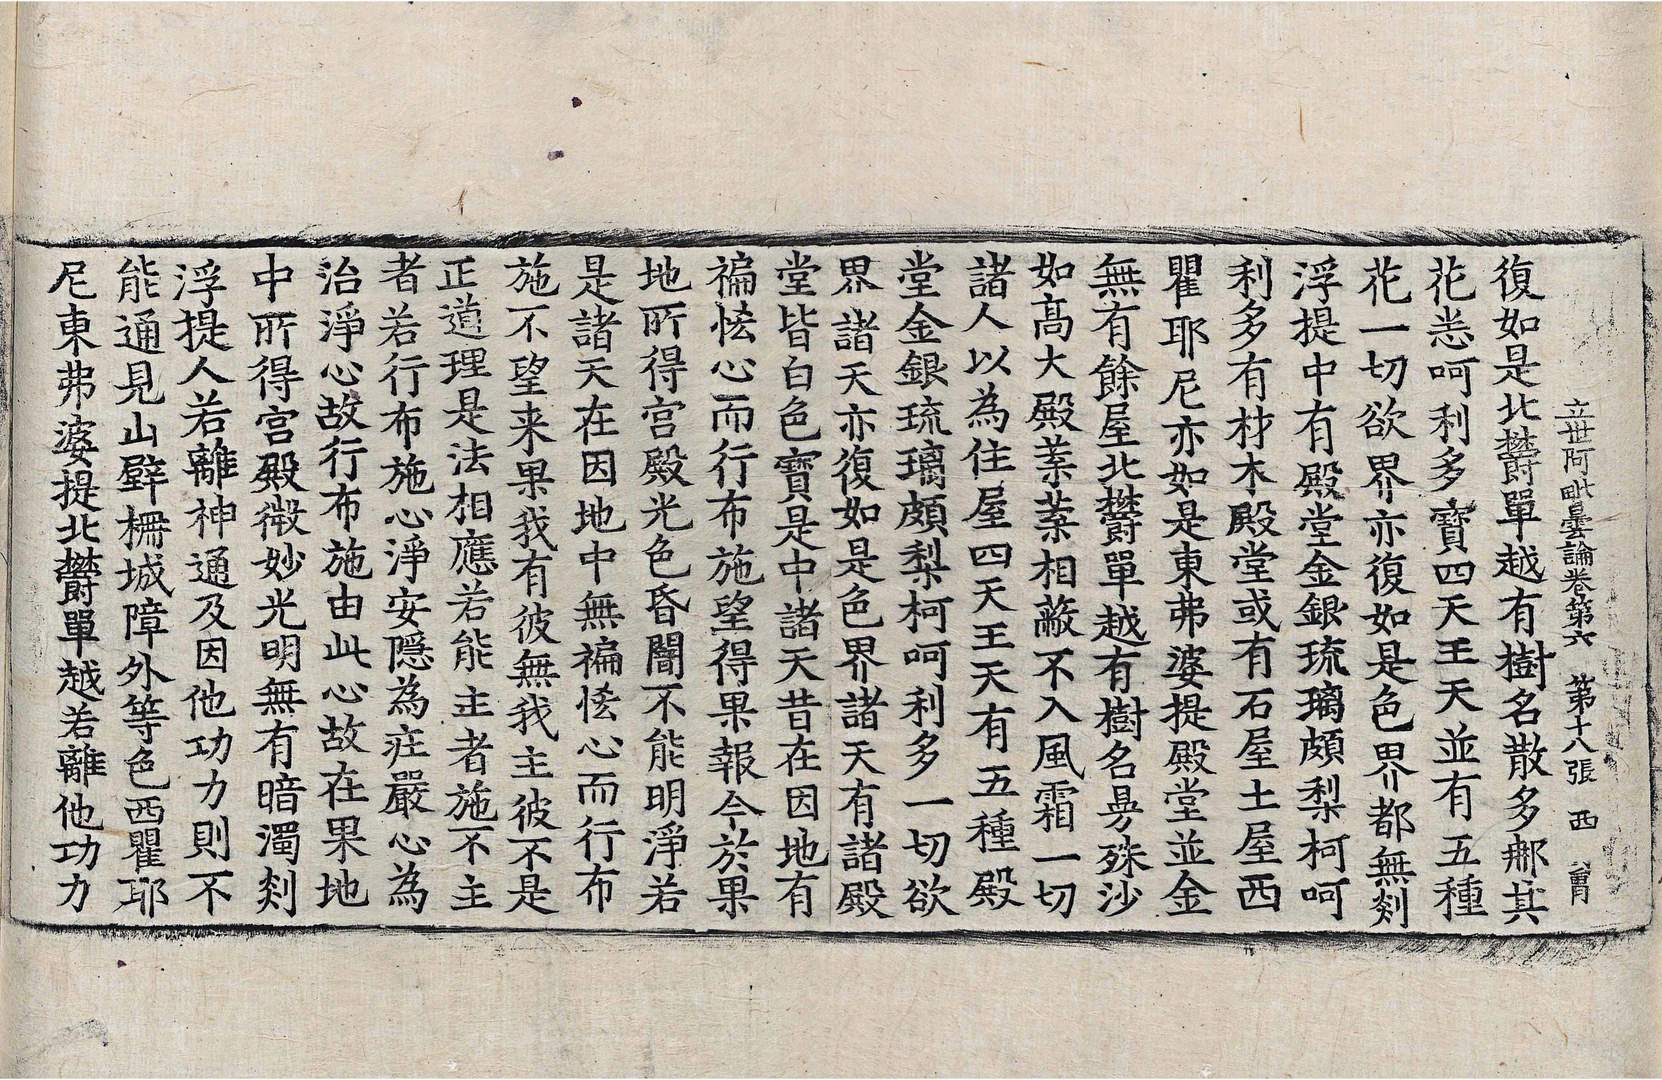 立世阿毗曇論卷第六　第十八張　西
復如是北欝單越有樹名散多𨚗其
花恙呵利多寶四天王天並有五種
花一切欲界亦復如是色界都無剡
浮提中有殿堂金銀琉璃頗梨柯呵
利多有材木殿堂或有石屋土屋西
瞿耶尼亦如是東弗婆提殿堂並金
無有餘屋北欝單越有樹名曼殊沙
如高大殿葉葉相蔽不入風霜一切
諸人以為住屋四天王天有五種殿
堂金銀琉璃頗梨柯呵利多一切欲
界諸天亦復如是色界諸天有諸殿
堂皆白色寶是中諸天昔在因地有
褊恡心而行布施望得果報今於果
地所得宮殿光色昏闇不能明淨若
是諸天在因地中無褊恡心而行布
施不望来果我有彼無我主彼不是
正道理是法相應若能主者施不主
者若行布施心淨安隱為莊嚴心為
治淨心故行布施由此心故在果地
中所得宮殿微妙光明無有暗濁剡
浮提人若離神通及因他功力則不
能通見山壁柵城障外等色西瞿耶
尼東弗婆提北欝單越若離他功力